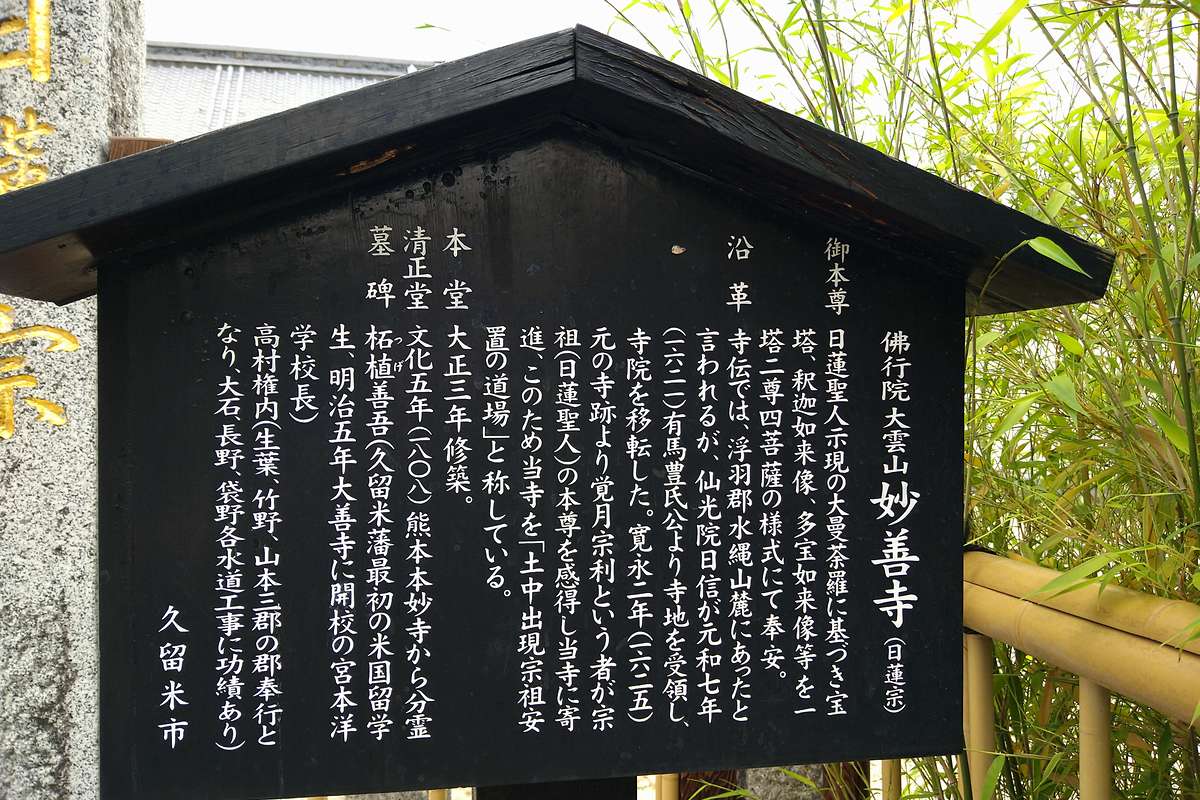 佛行院大雲山妙善寺(日蓮宗)
御本尊 日蓮聖人示現の大曼荼羅に基づき宝
塔、釈迦如来像、多宝如来像等を一
塔二尊四菩薩の様式にて奉安。
沿革 寺伝では、浮羽郡水縄山麓にあったと
言われるが、仙光院日信が元和七年
(一六二一)有馬豊氏公より寺地を受領し、
寺院を移転した。寛永二年(一六二五)
元の寺跡より覚月宗利という者が宗
祖(日蓮聖人)の本尊を感得し当寺に寄
進、このため当寺を「土中出現宗祖安
置の道場」と称している。
本堂 大正三年修築。
清正堂 文化五年(一八〇八)熊本本妙寺から分霊
墓碑 柘植善吾(久留米藩最初の米国留学
つげ
生、明治五年大善寺に開校の宮本洋
学校長)
高村権内(生葉、竹野、山本三郡の郡奉行と
なり、大石長野、袋野各水道工事に功績あり)
久留米市